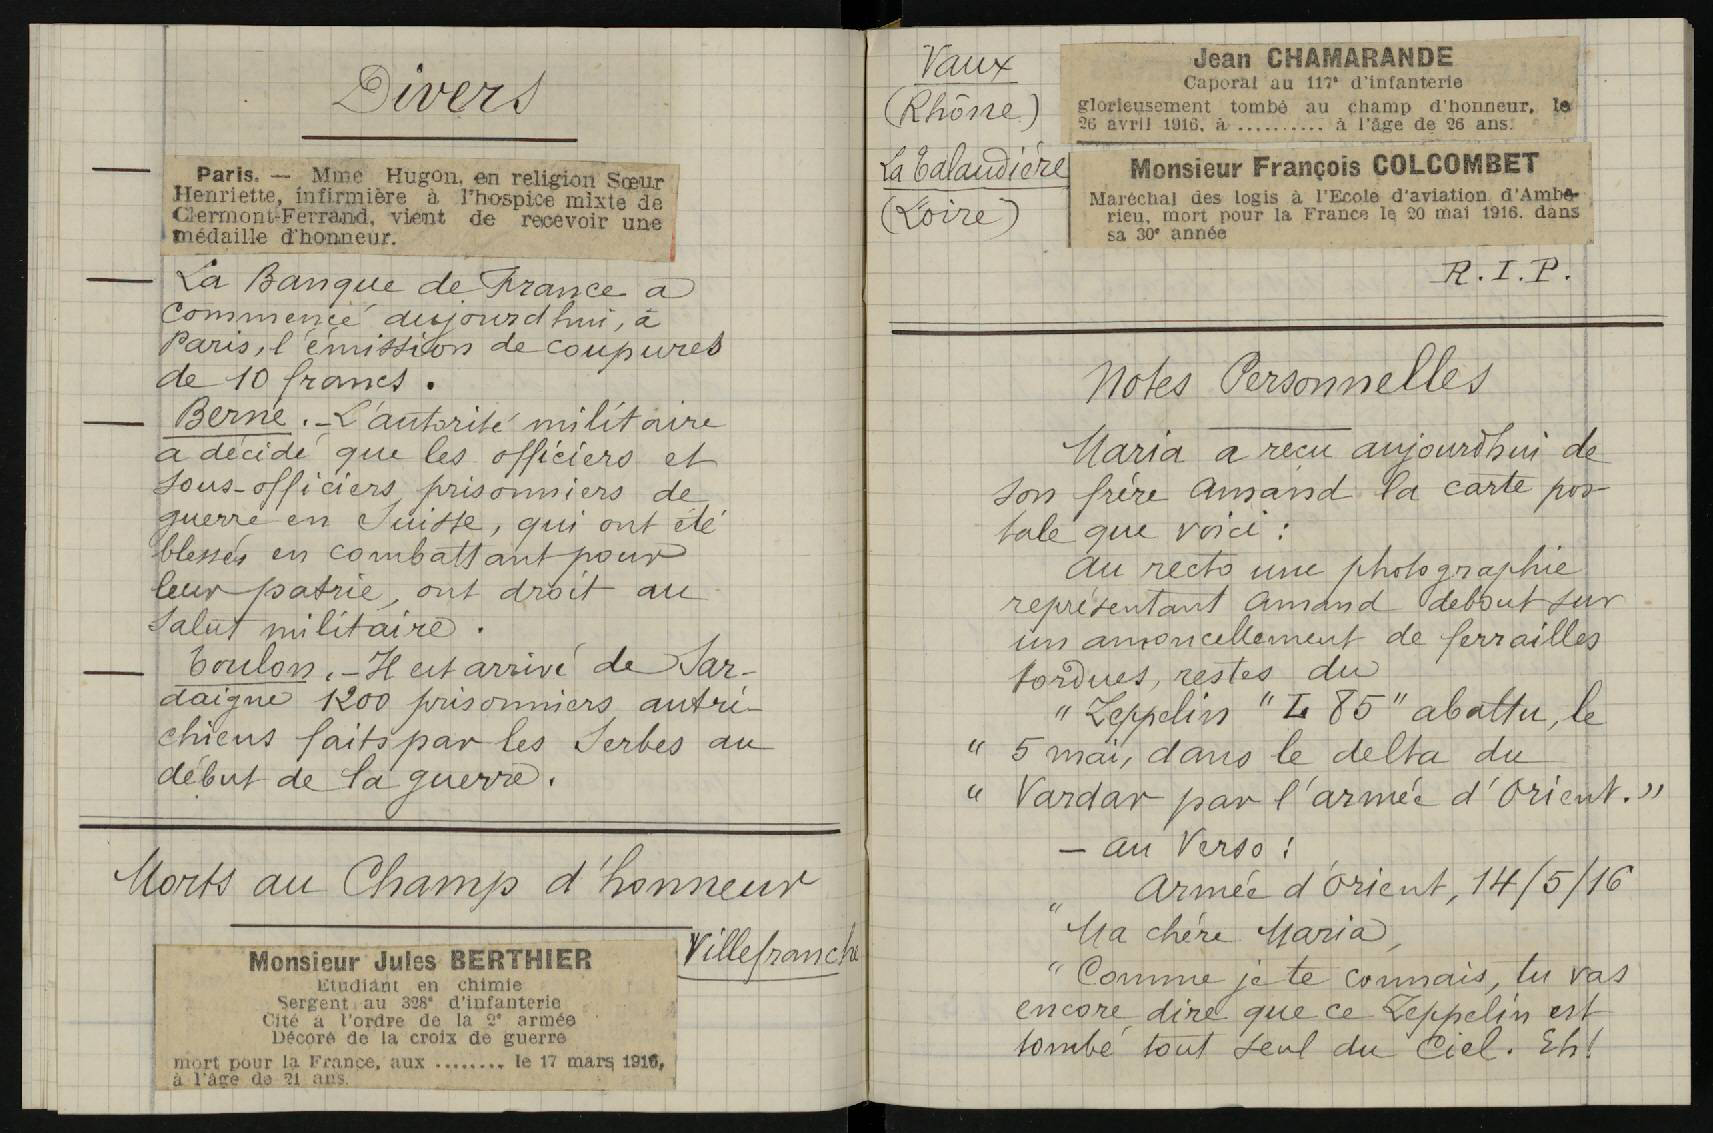 Divers
Paris. — Mme Hugon, en religion Sœur
Henriette, infirmière à l'hospice mixte de
Clermont-Ferrand, vient de recevoir une
médaille d'honneur.
La Banque de France a
commencé aujourd'hui, à
Paris, l'émission de coupures
de 10 francs.
Berne. - L'autorité militaire
a décidé que les officiers et
sous-officiers prisonniers de
guerre en Suisse, qui ont été
blessés en combattant pour
leur patrie, ont droit au
salut militaire.
Toulon. - Il est arrivé de Sar-
daigne 1200 prisonniers autri-
chiens faits par les Serbes au
début de la guerre.
Morts au Champ d'honneur
Villefranche
Monsieur Jules BERTHIER
Etudiant en chimie
Sergent au 328e d'infanterie
Cité à l'ordre de la 2e armée
Décoré de la croix de guerre
mort pour la France, aux ........ le 17 mars 1916,
à l'âge de 21 ans.
Vaux
(Rhône)
Jean CHAMARANDE
Caporal au 117e d'infanterie
glorieusement tombé au champ d'honneur, le
26 avril 1916, à .......... à l'âge de 26 ans.
La Talaudière
(Loire)
Monsieur François COLCOMBET
Maréchal des logis à l'Ecole d'aviation d'Ambé-
rieu, mort pour la France le 20 mai 1916, dans
sa 30e année
R.I.P.
Notes Personnelles
Maria a reçu aujourd'hui de
son frère Amand la carte pos-
tale que voici :
Au recto une photographie
représentant Amand debout sur
un amoncellement de ferrailles
tordues, restes du
" Zeppelin "L 85" abattu, le
" 5 mai, dans le delta du
" Vardar par l'armée d'Orient."
- Au Verso :
" Armée d'Orient, 14/5/16
Ma chère Maria,
" Comme je te connais, tu vas
encore dire que ce Zeppelin est
tombé tout seul du Ciel. Eh!